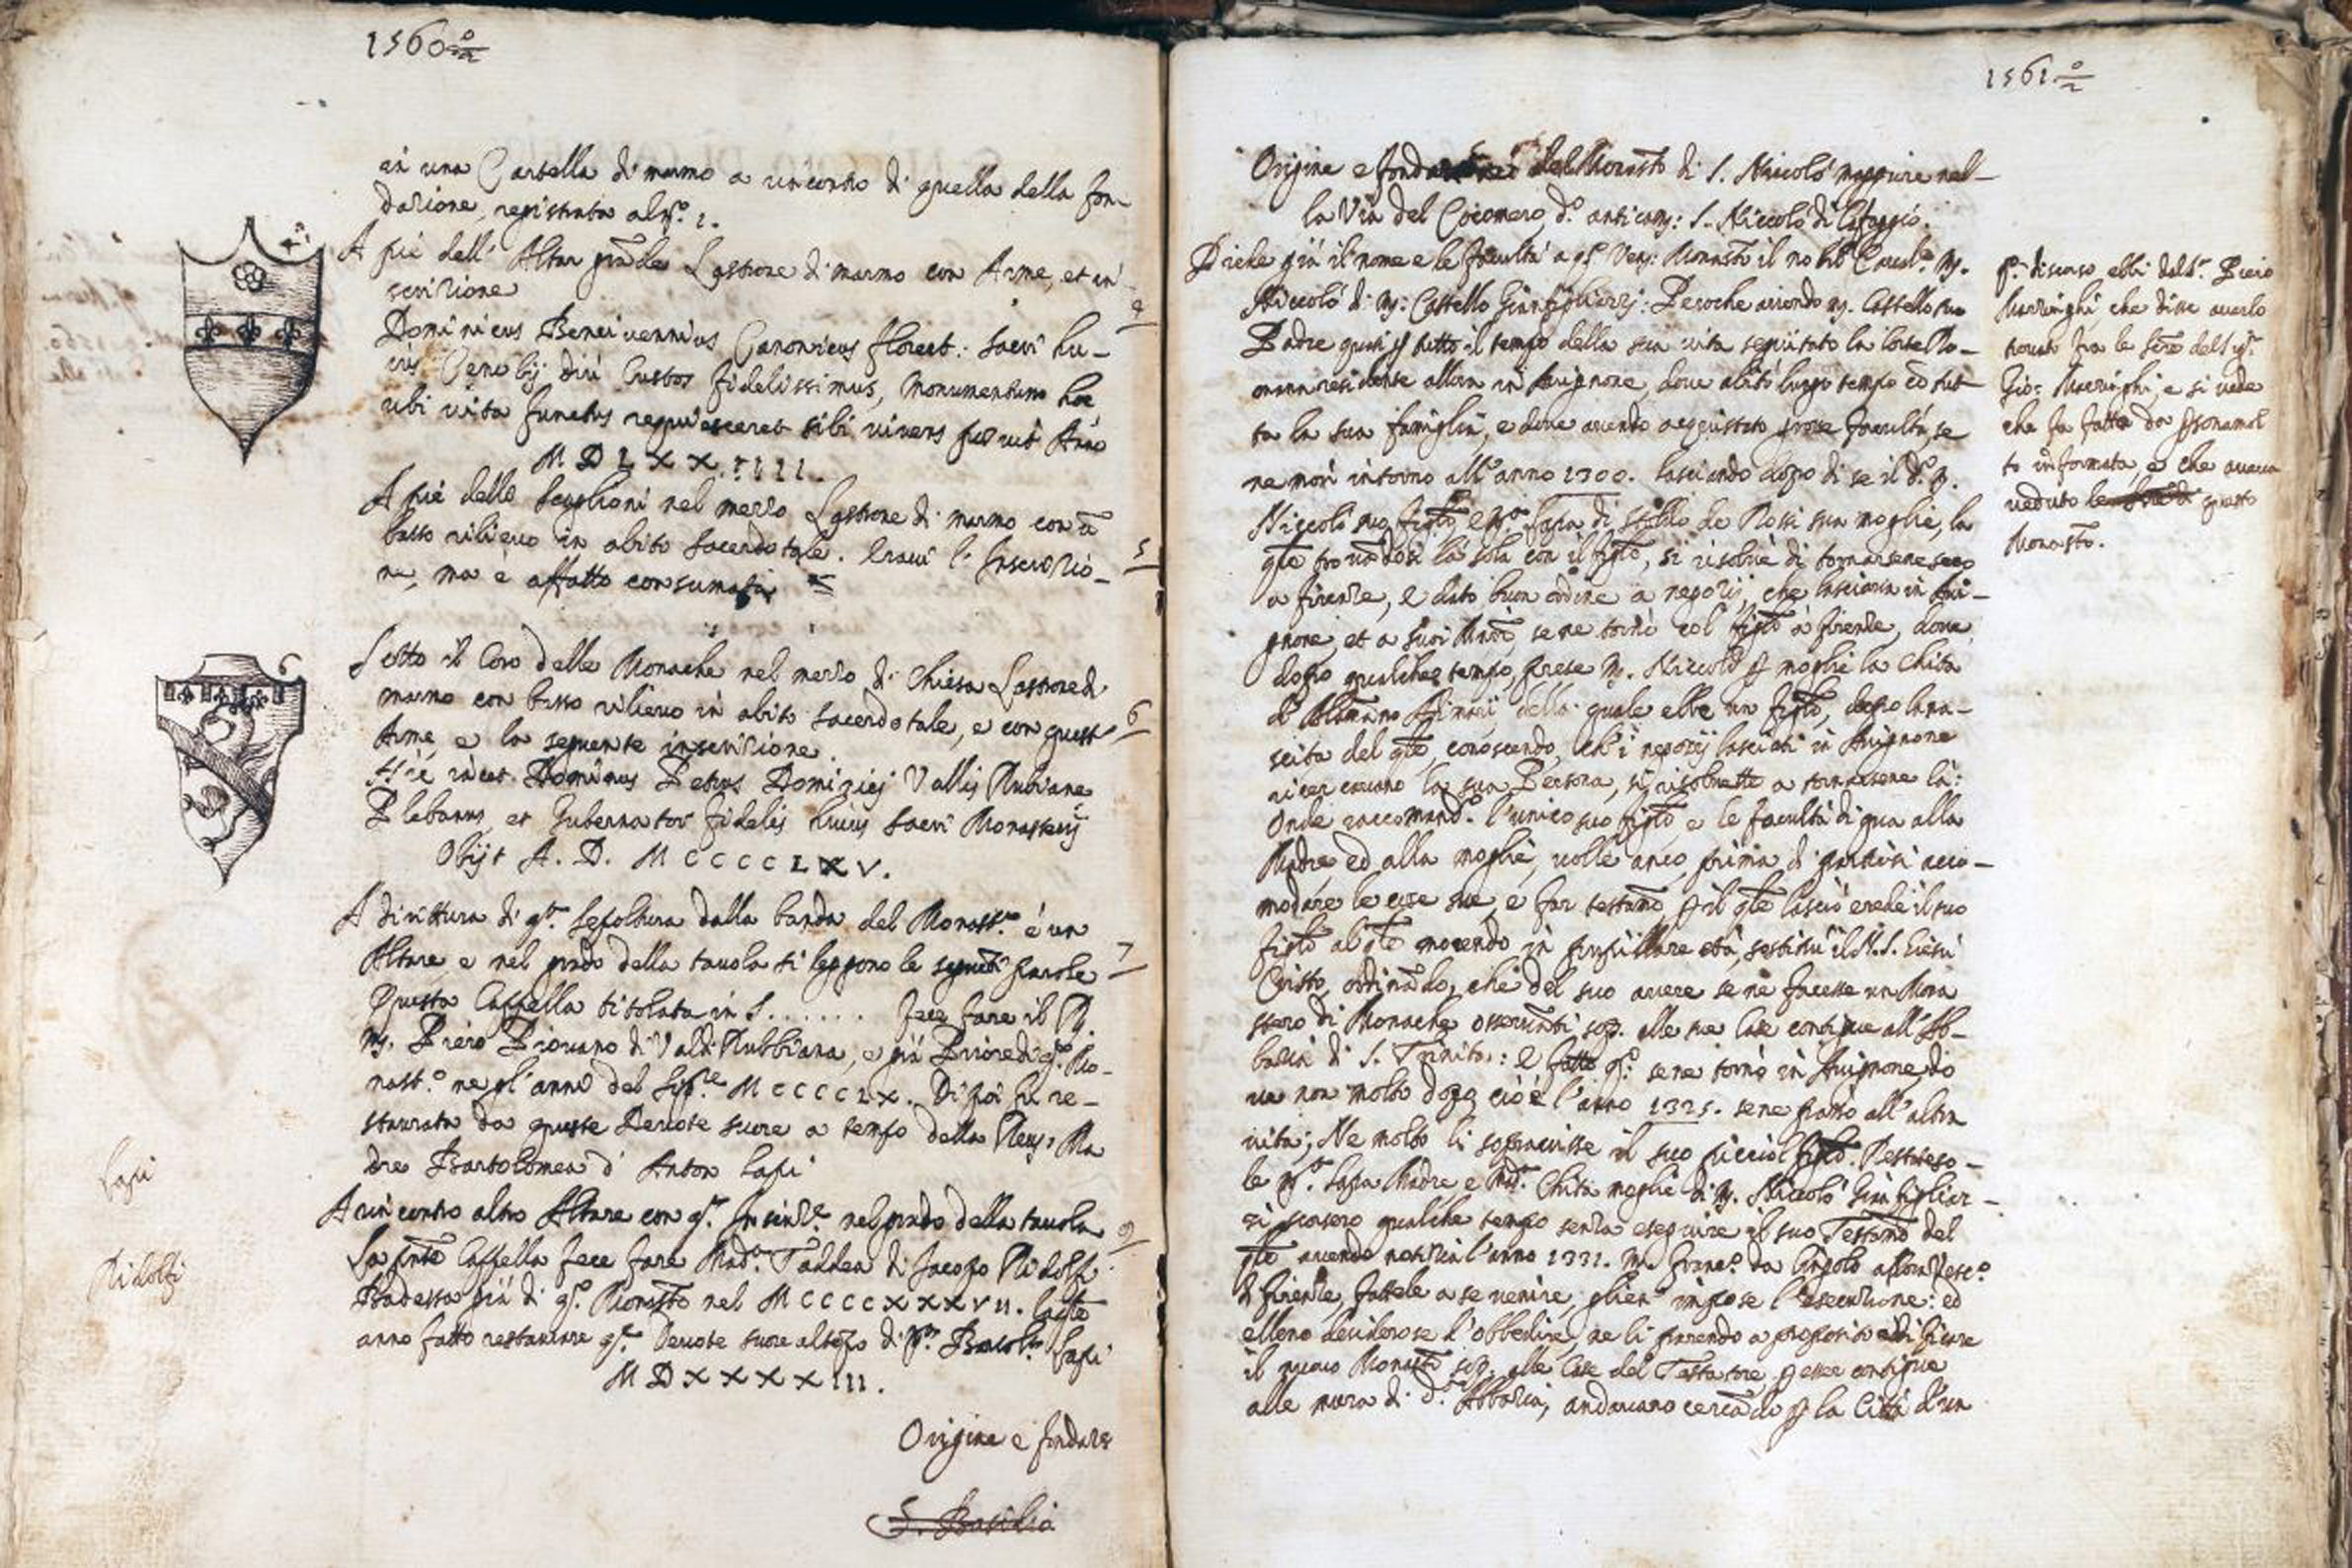 1560
in una Cartella di marmo a rincontro di quella della fon-
dazione, registrata al n.º 1.
A piè dell' Altar grãde Lastrone di marmo con Arme, et in-
scrizione
4
Dominicus Bencivennius Canonicus florent: sacri hu-
ius Cenobij diù Custos fidelissimus, monumentum hoc,
ubi vita functus requiesceret sibi vivens posuit Año
M D L X X IIII.
A piè dello Scaglioni nel mezzo Lastrone di marmo con ũ
5
basso rilievo in abito sacerdotale. Eravi l' Inscrizio-
ne, ma è affatto consumata
6
Sotto il Coro delle Monache nel mezzo di Chiesa Lastrone di
marmo con basso rilievo in abito sacerdotale, e con quest'
6
Arme, e la seguente inscrizione.
Hic iacet Dominus Petrus Dominici Vallis Rubiane
Plebanus, et Gubernator fidelis huius sacri Monasterij
Obijt A. D. M C C C C L X V.
A dirittura di q.ta sepoltura dalla banda del Monast.º è un
Altare e nel grado della tavola si leggono le seguẽti parole
7
Questa Cappella titolata in S. . . . . . . fece fare il R.
M. Piero Piovano di Val di Rubbiana, e già Priore di q.º Mo-
nast.º negl' anni del Sig.re M C C C C L X. Di poi fu re-
staurata da queste Devote suore a tempo della Rev: Ma
dre Bartolomea d' Anton Lapi
Lapi
A rincontro altro Altare con q.ª Inscriz.e nel grado della tavola
La pñte Cappella fece fare Mad.ª Taddea di Jacopo Ridolfi
Ridolfi
Badessa già di q.º Monasto nel M C C C C X X X V II.
anno fatto restaurare q.e Devote suore al tẽpo di Bartol. Lapi
M D X X X X III.
Origine e fondaz
S. Basilio
1561
Origine e fondazione del Monasto di S. Niccolò maggiore nel-
la Via del Cocomero, d.º anticam: S. Niccolò di Cafaggio.
Diede già il nome e le facultà a q.º Ven: Monasto il nobil Caval.re M.
Niccolò di M: Castello Gianfigliazzi: Peroche avendo M. Castello suo
Padre quasi p tutto il tempo della sua vita seguitato la Corte Ro-
mana residente allora in Avignone, dove abitò lungo tempo cõ tut-
ta la sua famiglia, e dove avendo acquistato grosse facultà, se
ne morì intorno all' anno 1300. lasciando dopo di se il d.º M.
Niccolò suo figlo, e M.ª Lapa di Stoldo de Rossi sua moglie, la
qle trovãdosi là sola con il figlo, si risolvè di tornarsene seco
a firenze, e dato buon ordine a negozij, che lasciava in Avi-
gnone, et a suoi Minri, se ne tornò col figlo à firenze, dove
dopo qualche tempo, prese M. Niccolò p moglie la Chita
d' Altimano Adimari della quale ebbe un figlo, dopo la na-
scita del qle, conoscendo, ch' i negozij lasciati in Avignone
ricercavano la sua Persona, si risolvette a tornarsene là:
Onde raccomand.º l'unico suo figlo e le facultà di qua alla
Madre ed alla moglie, volle anco, prima di partirsi acco-
modare le cose sue, e far testamo, p il qle lasciò erede il suo
figlo al qle morendo in pupillare età, sostituì il N. S. Giesù
Cristo, ordinãdo, che del suo avere se ne facesse un Mona
stero di Monache osservãti sop. alle sue Case contigue all' Ab-
bazia di S. Trinita: E fatto q.º se ne tornò in Avignone, do
ve non molto dopo, cioè l' anno 1325. se ne passò all' altra
vita; Ne molto li sopravisse il suo picciol figlo. Restateso-
le M.ª Lapa Madre, e Mad.ª Chita moglie di M. Niccolò Gianfigliaz-
zi scorsero qualche tempo senza eseguire il suo Testamo del
qle avendo notizia l' anno 1331. M. Franc.º da Cingoli allora Vesc.º
di firenze, fattele a se venire, glien' impose l' esecuzione: ed
elleno desiderose d' obbedire, ne li parendo a proposito edificare
il nuovo Monasto sop. alle Case del Testatore p esser contigue
alle mura di d.ª Abbazia, andavano cercãdo p la Città d' un
q.º discorso ebbi dal S.r Piero
Marringhi, che disse averlo
trovato fra le del q.
Gio: Marringhi, e si vede
che fu fatto da psona mol
to informata, e che aveva
veduto questo
Monasto.